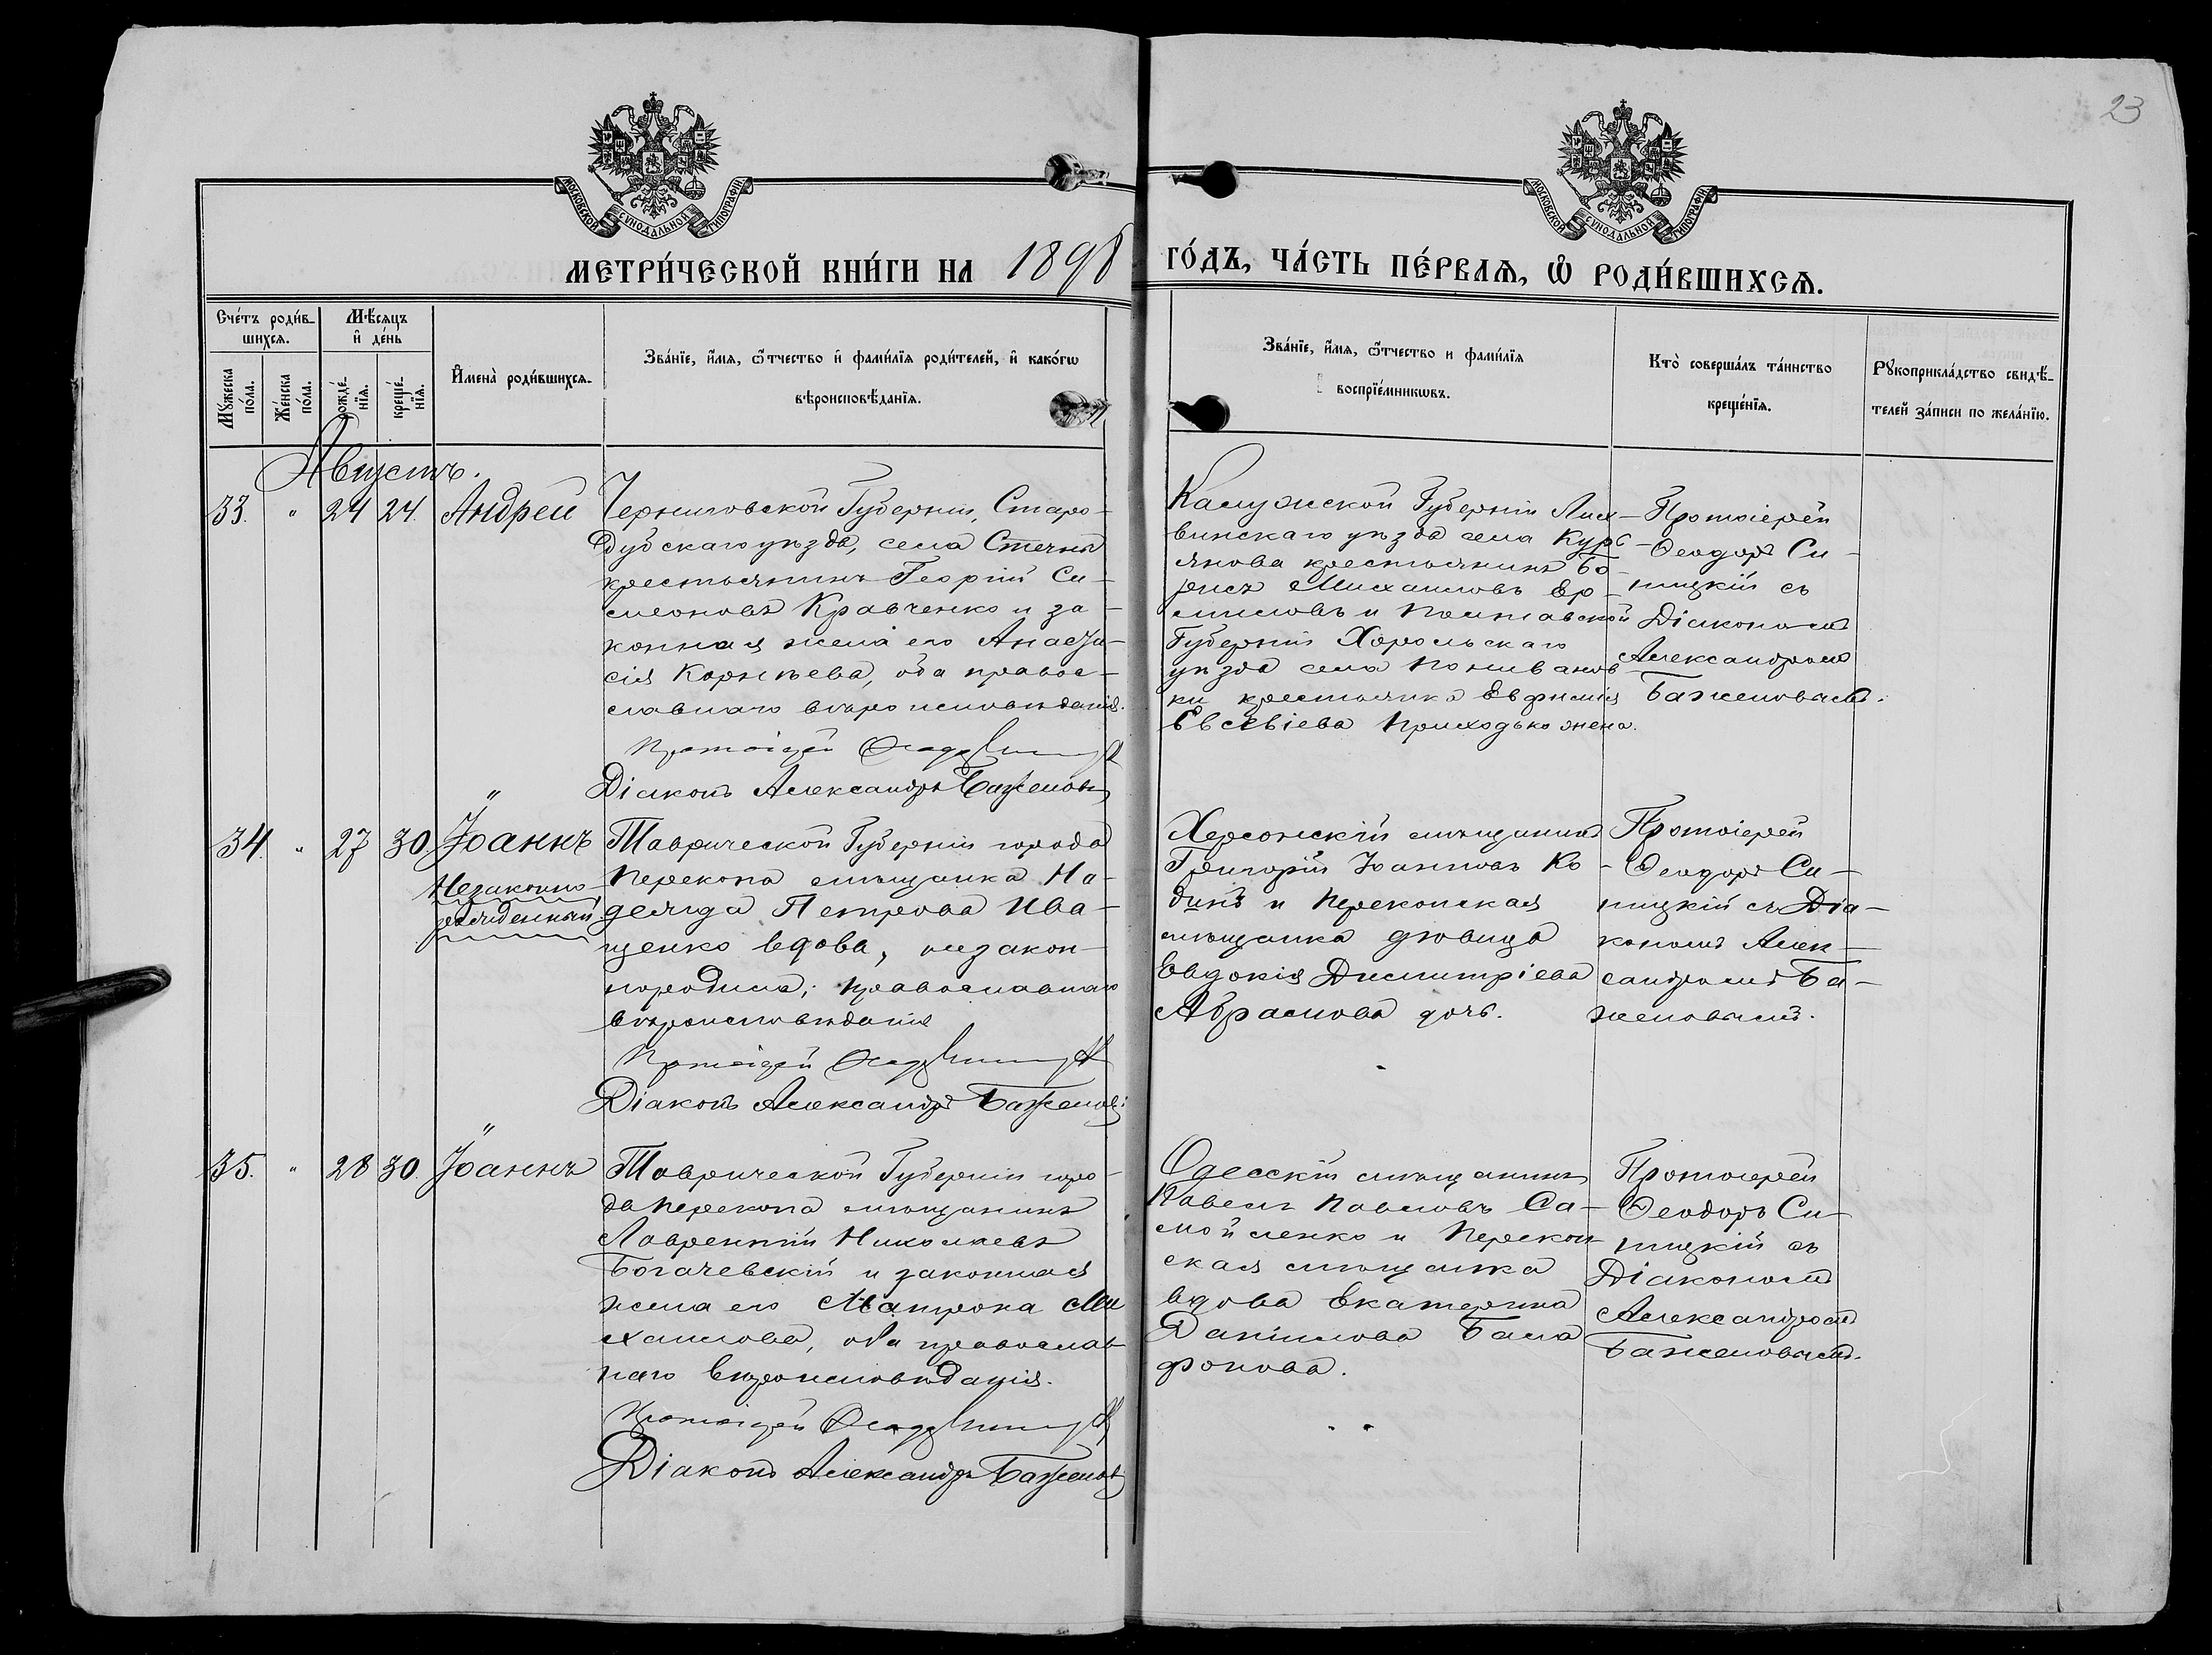 23
МОСКОВСКОЙ СУНОДАЛЬНОЙ ТИПОГРАФІИ
МОСКОВСКОЙ СУНОДАЛЬНОЙ ТИПОГРАФІИ
МЕТРИ́ЧЕСКОЙ КНИ́ГИ НА 1898
ГО́ДЪ, ЧА́СТЬ ПЕ́РВАѦ, Ѡ҆ РОДИ́ВШИХСѦ.
Сче́тъ роди́в-
шихсѧ.
Мѣ́сѧцъ
и҆ де́нь
Мꙋ́жеска
по́ла.
Же́нска
по́ла.
рожде́-
нїѧ.
креще́-
нїѧ.
И҆мена̀ роди́вшихсѧ.
Зва́нїе, и҆́мѧ, ѻ҆́тчество и҆ фами́лїѧ роди́телей, и҆ како́гѡ
вѣроисповѣ́данїѧ.
Зва́нїе, и҆́мѧ, ѻ҆́тчество и фами́лїѧ
воспрїе́мникѡвъ.
Кто̀ соверша́лъ та́инство
креще́нїѧ.
Рꙋкоприкла́дство свидѣ́-
телей за́писи по жела́нїю.
Августъ.
33. " 24 24. Андрей
Черниговской Губерніи, Старо-
дубскаго уѣзда, села Стечны
крестьянинъ Георгій Си-
меоновъ Кравченко и за-
конная жена его Анаста-
сія Корнѣева, оба правос-
славнаго вѣроисповѣданія.
Протоіерей Ѳеодоръ Синицкій
Діаконъ Александръ Баженовъ
Калужской Губерніи Лих-
винскаго уѣзда села Курб-
янова крестьянинъ Бо-
рисъ Михаиловъ Ер-
миловъ и Полтавской
Губерніи Хорольскаго
уѣзда села
ки крестьянка Евфимія
Евсевіева Приходько жена.
Протоіерей
Ѳеодоръ Си-
ницкій съ
Діакономъ
Александромъ
Баженовымъ.
34. " 27 30. Іоаннъ
Незаконно-
рожденный
Таврической Губерніи города
Перекопа мѣщанка На-
дежда Петрова Ива-
щенко вдова, незакон-
нородила; православнаго
вѣроисповѣданія
Протоіерей Ѳеодоръ Синицкій
Діаконъ Александръ Баженовъ
Херсонскій мѣщанинъ
Григорій Іоанновъ Ко-
динъ и Перекопская
мѣщанка дѣвица
Евдокія Димитріева
Абрамова дочь.
Протоіерей
Ѳеодоръ Си-
ницкій съ Діа-
кономъ Алек-
сандромъ Ба-
женовымъ.
35. " 28 30. Іоаннъ
Таврической Губерніи горо-
да Перекопа мѣщанинъ
Лаврентій Николаевъ
Богачевскій и законная
жена его Матрона Ми
хаилова, оба православ
наго вѣроисповѣданія.
Протоіерей Ѳеодоръ Синицкій
Діаконъ Александръ Баженовъ
Одесскій мѣщанинъ
Павелъ Павловъ Са-
мойленко и Перекоп-
ская мѣщанка
вдова Екатерина
Даніилова Бала
фонова.
Протоіерей
Ѳеодоръ Си-
ницкій съ
Діакономъ
Александромъ
Баженовымъ.